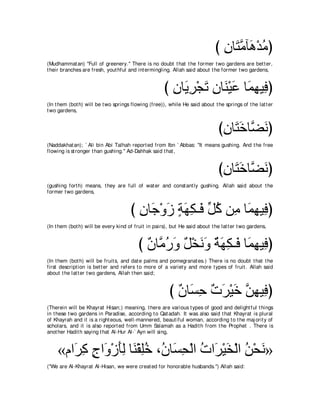 ( مُدْهَآمَّتَانِ )
(Mudhammatan) "Full of greenery." There is no doubt that the former two gardens are better, their branches are fresh, youthful and intermingling. Allah said about the former two gardens,
( فِيهِمَا عَيْنَانِ تَجْرِيَانِ )
(In them (both) will be two springs flowing (free)), while He said about the springs of the latter two gardens,
(نَضَّاخَتَانِ)
(Naddakhatan); `Ali bin Abi Talhah reported from Ibn `Abbas: "It means gushing. And the free flowing is stronger than gushing." Ad-Dahhak said that,
(نَضَّاخَتَانِ)
(gushing forth) means, they are full of water and constantly gushing. Allah said about the former two gardens,
( فِيهِمَا مِن كُلِّ فَـكِهَةٍ زَوْجَانِ )
(In them (both) will be every kind of fruit in pairs), but He said about the latter two gardens,
( فِيهِمَا فَـكِهَةٌ وَنَخْلٌ وَرُمَّانٌ )
(In them (both) will be fruits, and date palms and pomegranates.) There is no doubt that the first description is better and refers to more of a variety and more types of fruit. Allah said about the latter two gardens, Allah then said;
( فِيهِنَّ خَيْرَتٌ حِسَانٌ )
(Therein will be Khayrat Hisan;) meaning, there are various types of good and delightful things in these two gardens in Paradise, according to Qatadah. It was also said that Khayrat is plural of Khayrah and it is a righteous, well-mannered, beautiful woman, according to the majority of scholars, and it is also reported from Umm Salamah as a Hadith from the Prophet . There is another Hadith saying that Al-Hur Al-`Ayn will sing,
«نَحْنُ الْخَيْرَاتُ الْحِسَانُ، خُلِقْنَا لِأَزْوَاجٍ كِرَامٍ»
("We are Al-Khayrat Al-Hisan, we were created for honorable husbands.") Allah said: